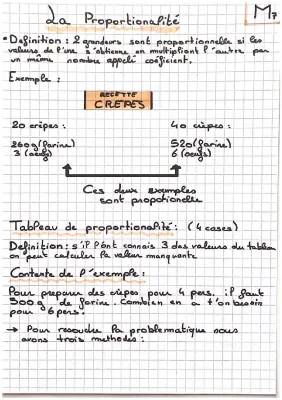 La Proportionalité
M7
• Définition : 2 grandeurs sont proportionnelle si les
valeurs de l'une s'obtienne en multipliant l'autre par
un même nombre appelé coéficient.
Exemple :
RECETTE
CRÊPES
20 crêpes :
40 crêpes :
260g (farine)
520g (farine)
3 (oeufs)
6 (oeufs)
Ces deux examples
sont proportionelle
Tableau de proportionalité : (4 cases)
Définition : s'il l'ont connais 3 des valeurs du tableau
on peut calculer la valeur manquante
Contexte de l'exemple :
Pour préparer des crêpes pour 4 pers. il faut
300g de farine. Combien en a t'on besoin
pour 6 pers.
→ Pour resoudre la problematique nous
avons trois methodes :